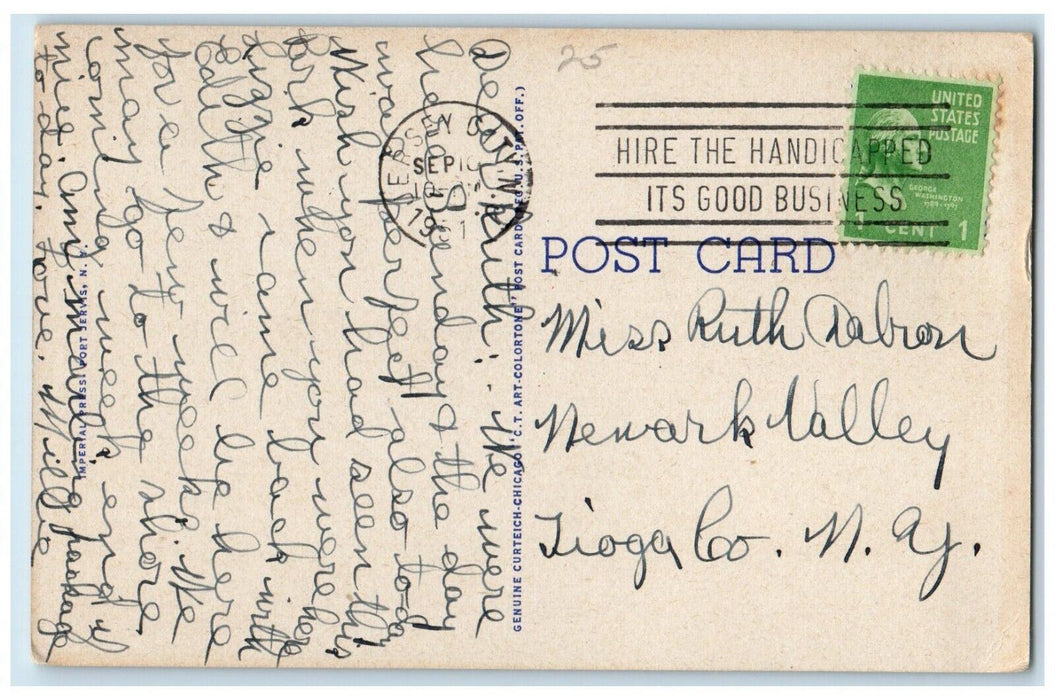 25
UNITED
STATES
POSTAGE
GEORGE
WASHINGTON
1789-1797
1 CENT 1
JERSEY CITY, N.J.
SEP 10
1951
HIRE THE HANDICAPPED
ITS GOOD BUSINESS
POST CARD
Miss Ruth Dabron
Newark Valley
Tioga Co. N. Y.
GENUINE CURTEICH-CHICAGO "C.T. ART-COLORTONE" POST CARD (REG. U.S. PAT. OFF.)
IMPERIAL PRESS, PORT JERVIS, N.
Dear Ruth: We were
here Sunday & the day
was perfect also today
Wish you had seen this
Park when you were here
Lizzie came back with
Edith & will be here
for a few weeks. We
may go to the shore
coming week end if
nice. Amy mailing package
today. Love. Mille